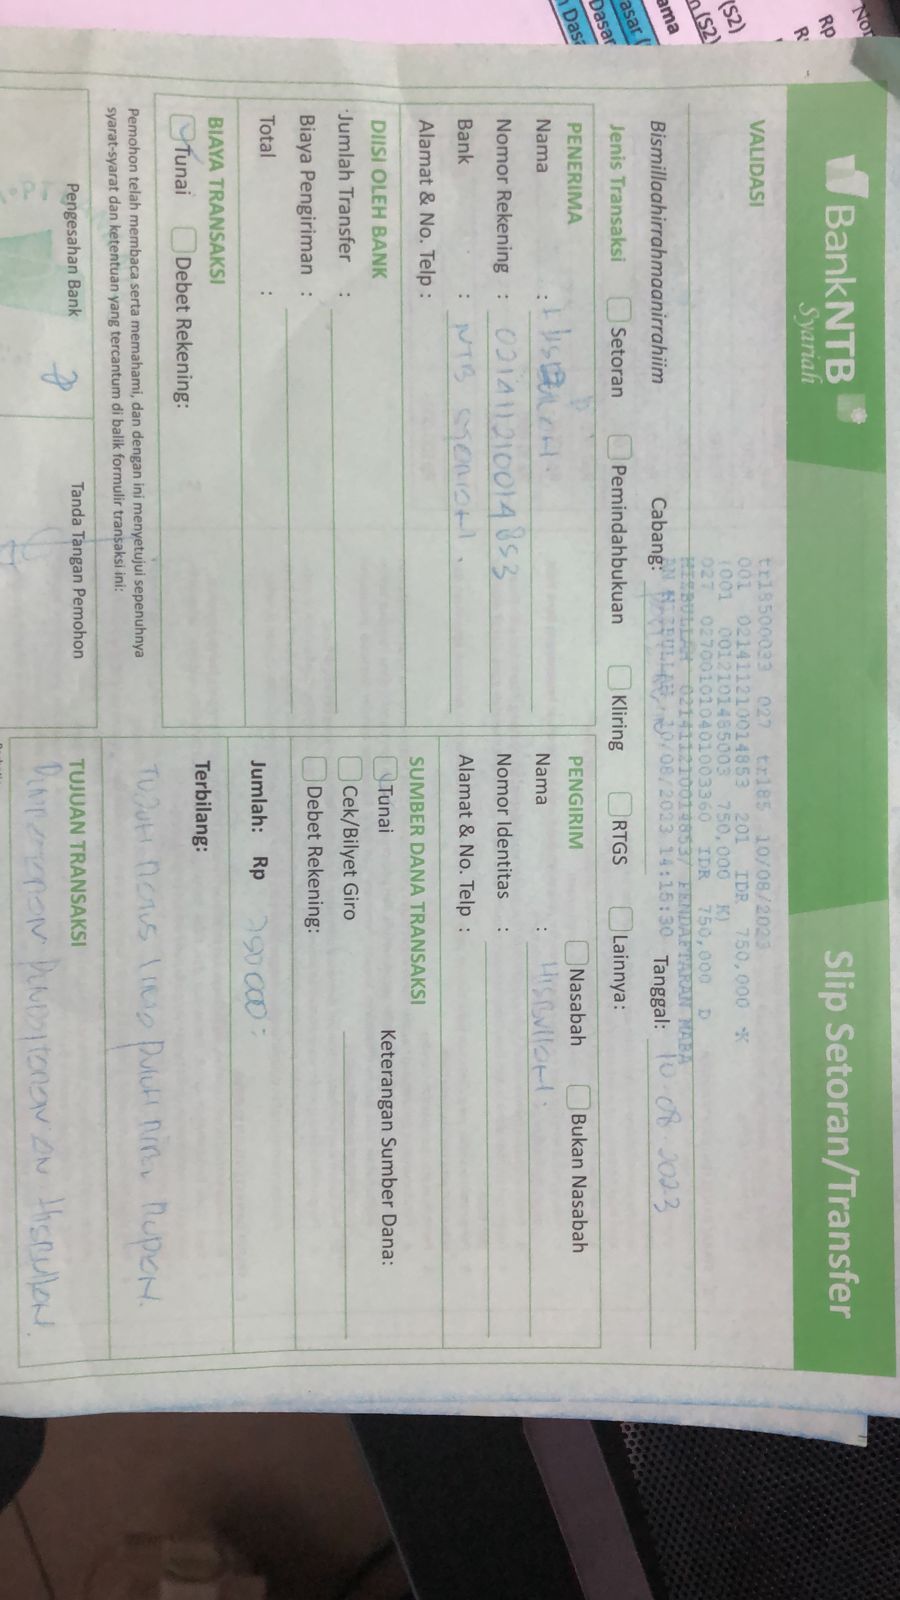 BankNTB
Syariah
Slip Setoran/Transfer
VALIDASI
tr18500033 027 tr185 10/08/2023
001 021411210014853 201 IDR 750,000 *K
(001 0012101485003 750,000 K)
027 027001010401003360 IDR 750,000 D
HISBULLAH 021411210014853/ PENDAFTARAN MABA
AN HISBULLAH, 10/08/2023 14:15:30
Bismillaahirrahmaanirrahiim
Cabang:
Tanggal: 10.08.2023
Jenis Transaksi Setoran Pemindahbukuan Kliring RTGS Lainnya:
PENERIMA
Nama :
Nomor Rekening : 021411210014853
Bank : NTB Syariah.
Alamat & No. Telp :
PENGIRIM Nasabah Bukan Nasabah
Nama : Hisbullah.
Nomor Identitas :
Alamat & No. Telp :
DIISI OLEH BANK
Jumlah Transfer :
Biaya Pengiriman :
Total :
SUMBER DANA TRANSAKSI
Keterangan Sumber Dana:
Tunai
Cek/Bilyet Giro
Debet Rekening:
BIAYA TRANSAKSI
Tunai Debet Rekening:
Jumlah: Rp 750.000
Terbilang:
Tujuh ratus lima puluh ribu rupiah.
Pemohon telah membaca serta memahami, dan dengan ini menyetujui sepenuhnya
syarat-syarat dan ketentuan yang tercantum di balik formulir transaksi ini:
Pengesahan Bank
Tanda Tangan Pemohon
TUJUAN TRANSAKSI
Pembayaran Pendaftaran an Hisbullah.
Nor
Rp
(S2)
n (S2)
ama
asar (
Dasar
n Dasa